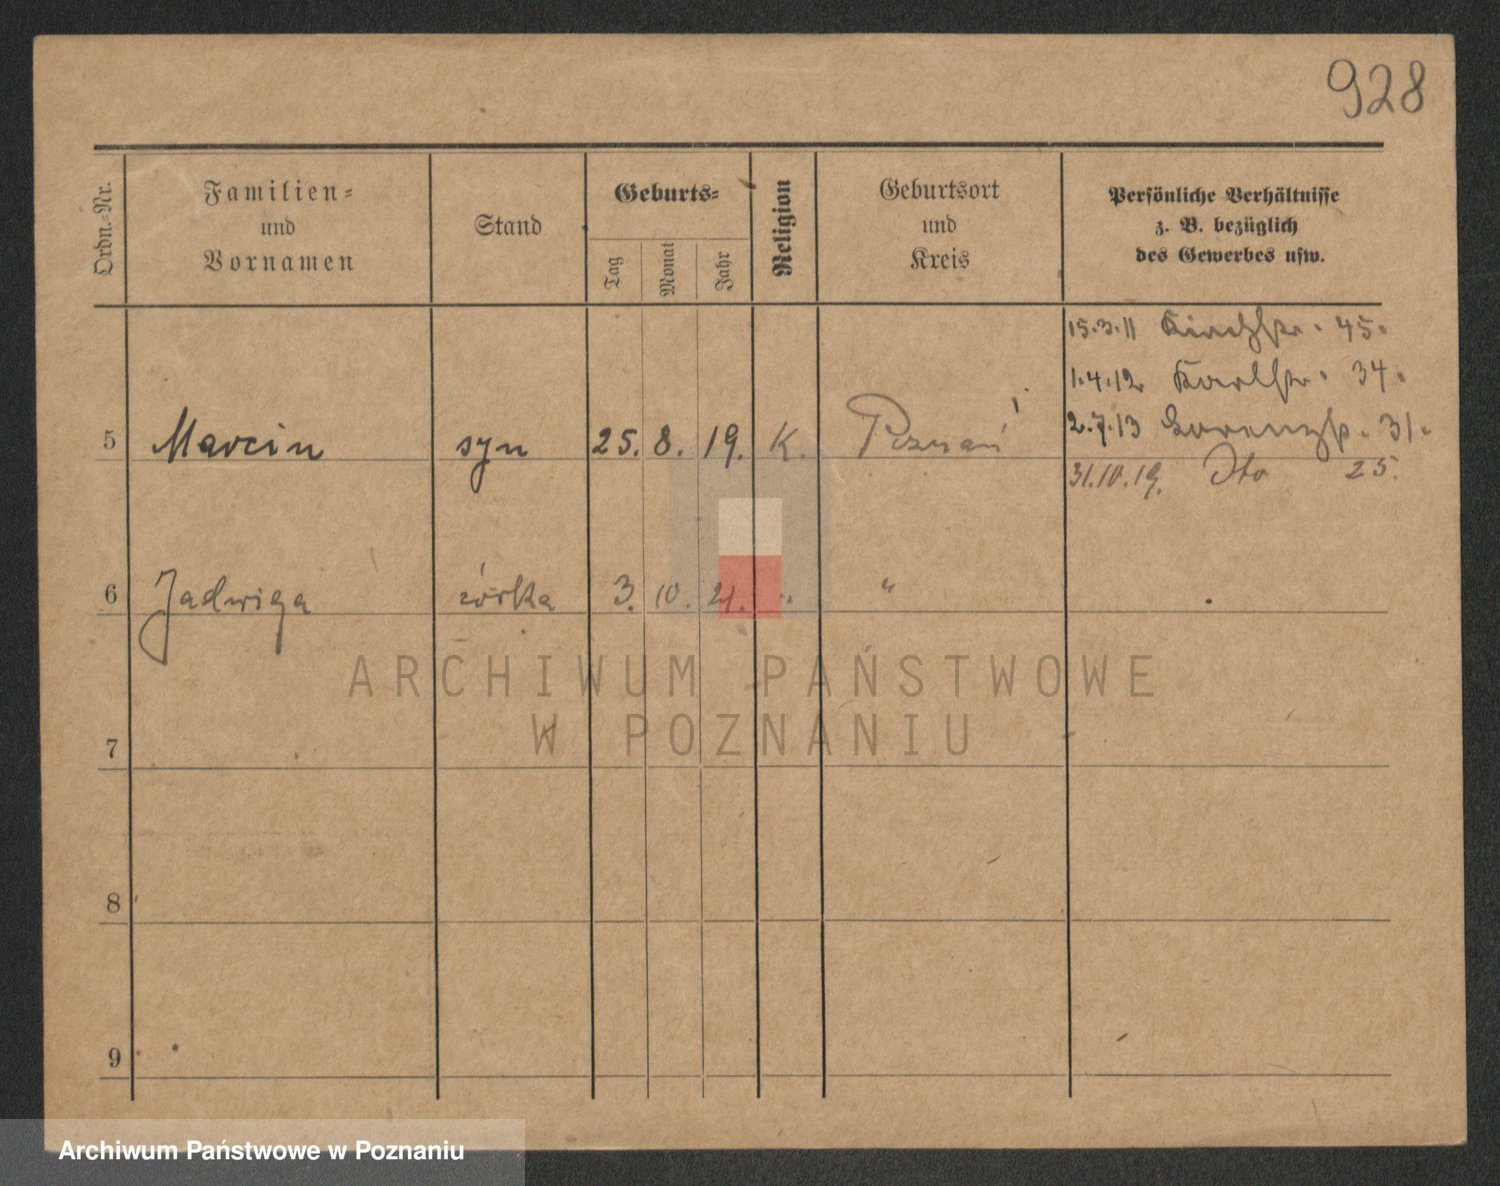 928
Ordn.-Nr.
Familien-
und
Vornamen
Stand
Geburts-
Tag
Monat
Jahr
Religion
Geburtsort
und
Kreis
Persönliche Verhältnisse
z. B. bezüglich
des Gewerbes usw.
15.3.11 Kirchstr. 45.
1.4.12 Karlstr. 34.
2.7.13 Lorenzstr. 31.
5 Marcin syn 25. 8. 19. K. Poznań
31.10.19. Dto 25.
6 Jadwiga córka 3. 10. 21. " "
ARCHIWUM PAŃSTWOWE
W POZNANIU
7
8
9
Archiwum Państwowe w Poznaniu